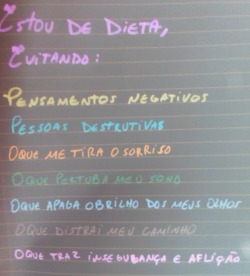 Estou de dieta,
Evitando:
Pensamentos negativos
Pessoas destrutivas
Oque me tira o sorriso
Oque pertuba meu sono
Oque apaga obrilho dos meus olhos
Oque distrai meu caminho
Oque traz insegurança e aflição